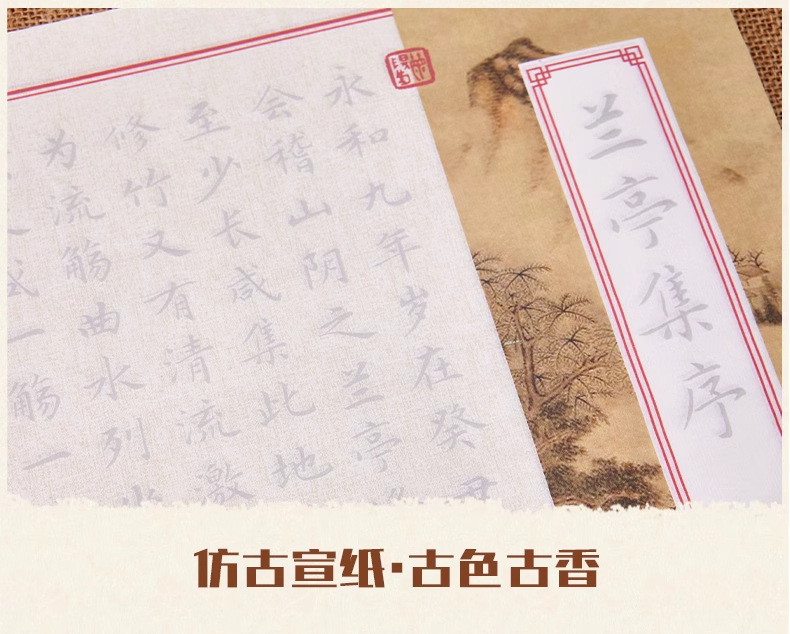 兰亭集序
永和九年岁在癸
会稽山阴之兰亭
至少长咸集此地
修竹又有清流激
为流觞曲水列
一觞一
仿古宣纸·古色古香